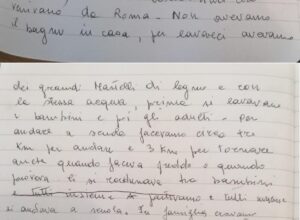 venivano da Roma. Non avevamo
il bagno in casa, per lavarci avevamo
dei grandi Mastelli di legno e con
la stessa acqua, prima si lavavano
i bambini e poi gli adulti. Per
andare a scuola facevamo circa tre
km per andare e 3 km per tornare
anche quando faceva freddo e quando
pioveva li si radunava tra bambini
e tutti insieme partivamo e tutti insieme
si andava a scuola. In famiglia eravamo